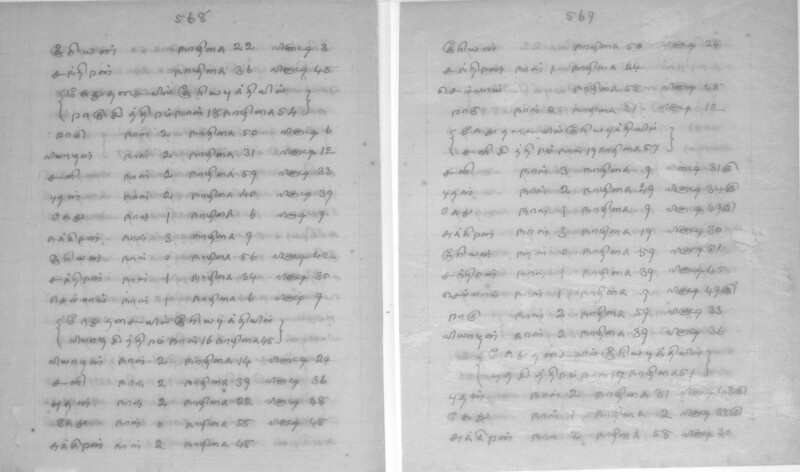 568
சூரியன் நாழிகை 22 வினாடி 3
சந்திரன் நாழிகை 36 வினாடி 45
{ கேதுதசையில் சூரியபுக்தியில்
ராகு நாள் 18 நாழிகை 54 }
ராகு நாள் 2 நாழிகை 50 வினாடி 6
வியாழன் நாள் 2 நாழிகை 31 வினாடி 12
சனி நாள் 2 நாழிகை 59 வினாடி 33
புதன் நாள் 2 நாழிகை 40 வினாடி 39
கேது நாள் 1 நாழிகை 6 வினாடி 9
சுக்கிரன் நாள் 3 நாழிகை 9
சூரியன் நாள் 0 நாழிகை 56 வினாடி 42
சந்திரன் நாள் 1 நாழிகை 34 வினாடி 30
செவ்வாய் நாள் 1 நாழிகை 6 வினாடி 9
{ கேதுதசையில் சூரியபுக்தியில்
நாள் 16 நாழிகை 48 }
வியாழன் நாள் 2 நாழிகை 14 வினாடி 24
சனி நாள் 2 நாழிகை 39 வினாடி 36
புதன் நாள் 2 நாழிகை 22 வினாடி 48
கேது நாள் 0 நாழிகை 58 வினாடி 48
சுக்கிரன் நாள் 2 நாழிகை 48
569
சூரியன் நாழிகை 50 வினாடி 24
சந்திரன் நாள் 1 நாழிகை 24
செவ்வாய் நாழிகை 58 வினாடி 48
ராகு நாள் 2 நாழிகை 31 வினாடி 12
{ கேதுதசையில் சூரியபுக்தியில்
சனி நாள் 19 நாழிகை 57 }
சனி நாள் 3 நாழிகை 9 வினாடி 31
புதன் நாள் 2 நாழிகை 49 வினாடி 34
கேது நாள் 1 நாழிகை 9 வினாடி 49
சுக்கிரன் நாள் 3 நாழிகை 19 வினாடி 30
சூரியன் நாள் 0 நாழிகை 59 வினாடி 51
சந்திரன் நாள் 1 நாழிகை 39 வினாடி 45
செவ்வாய் நாள் 1 நாழிகை 9 வினாடி 49
ராகு நாள் 2 நாழிகை 59 வினாடி 33
வியாழன் நாள் 2 நாழிகை 39 வினாடி 36
{ கேதுதசையில் சூரியபுக்தியில்
நாள் 17 நாழிகை 51 }
புதன் நாள் 2 நாழிகை 31 வினாடி 43
கேது நாள் 1 நாழிகை 2 வினாடி 28
சுக்கிரன் நாள் 2 நாழிகை 58 வினாடி 30